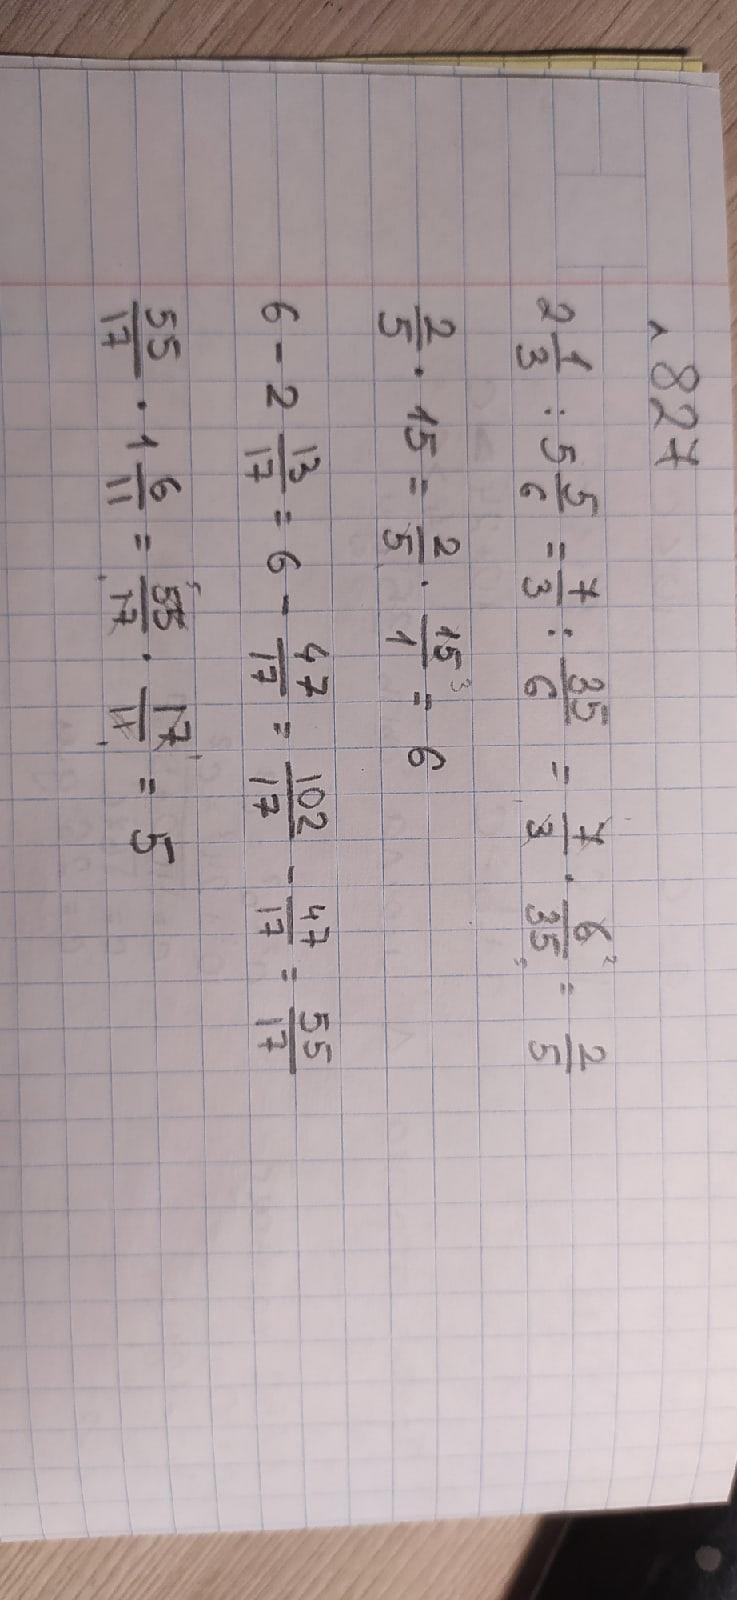 л 827
2 1/3 : 5 5/6 = 7/3 : 35/6 = 7/3 · 6²/35₅ = 2/5
2/5 · 15 = 2/5 · 15³/1 = 6
6 - 2 13/17 = 6 - 47/17 = 102/17 - 47/17 = 55/17
55/17 · 1 6/11 = 55⁵/17₁ · 17¹/11₁ = 5